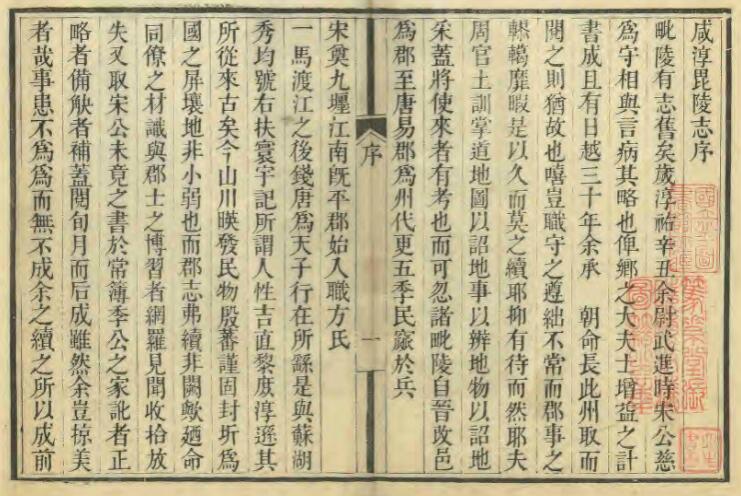 咸淳毘陵志序
毗陵有志舊矣歲淳祐辛丑余尉武進時宋公慈
爲守相與言病其略也俾鄉之大夫士增益之計
書成且有日越三十年余承　朝命長此州取而
閱之則猶故也嘻豈職守之遵絀不常而郡事之
轇轕靡暇是以久而莫之續耶抑有待而然耶夫
周官土訓掌道地圖以詔地事以辨地物以詔地
采蓋將使來者有考也而可忽諸毗陵自晉改邑
爲郡至唐易郡爲州代更五季民竄於兵
序
一
宋奠九壥江南旣平郡始入職方氏
一馬渡江之後錢唐爲天子行在所繇是與蘇湖
秀均號右扶寰宇記所謂人性吉直黎庶淳遜其
所從來古矣今山川暎發民物殷蕃謹固封圻爲
國之屏壤地非小弱也而郡志弗續非闕歟廼命
同僚之材識與郡士之博習者網羅見聞收拾放
失又取宋公未竟之書於常簿季公之家訛者正
略者備觖者補蓋閱旬月而后成雖然余豈掠美
者哉事患不爲爲而無不成余之續之所以成前